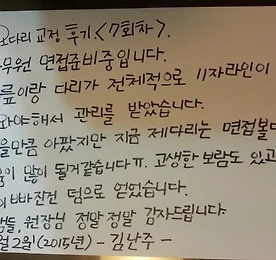 다리 교정 후기 <7회차>.
무원 면접준비중입니다.
릎이랑 다리가 전체적으로 11자라인이
와야해서 관리를 받았습니다.
을만큼 아팠지만 지금 제다리는 면접볼때
이 많이 될거같습니다ㅠ. 고생한 보람도 있고
이 빠진건 덤으로 얻었습니다.
들, 원장님 정말 정말 감사드립니다
월 2일 (2015년) - 김난주 -